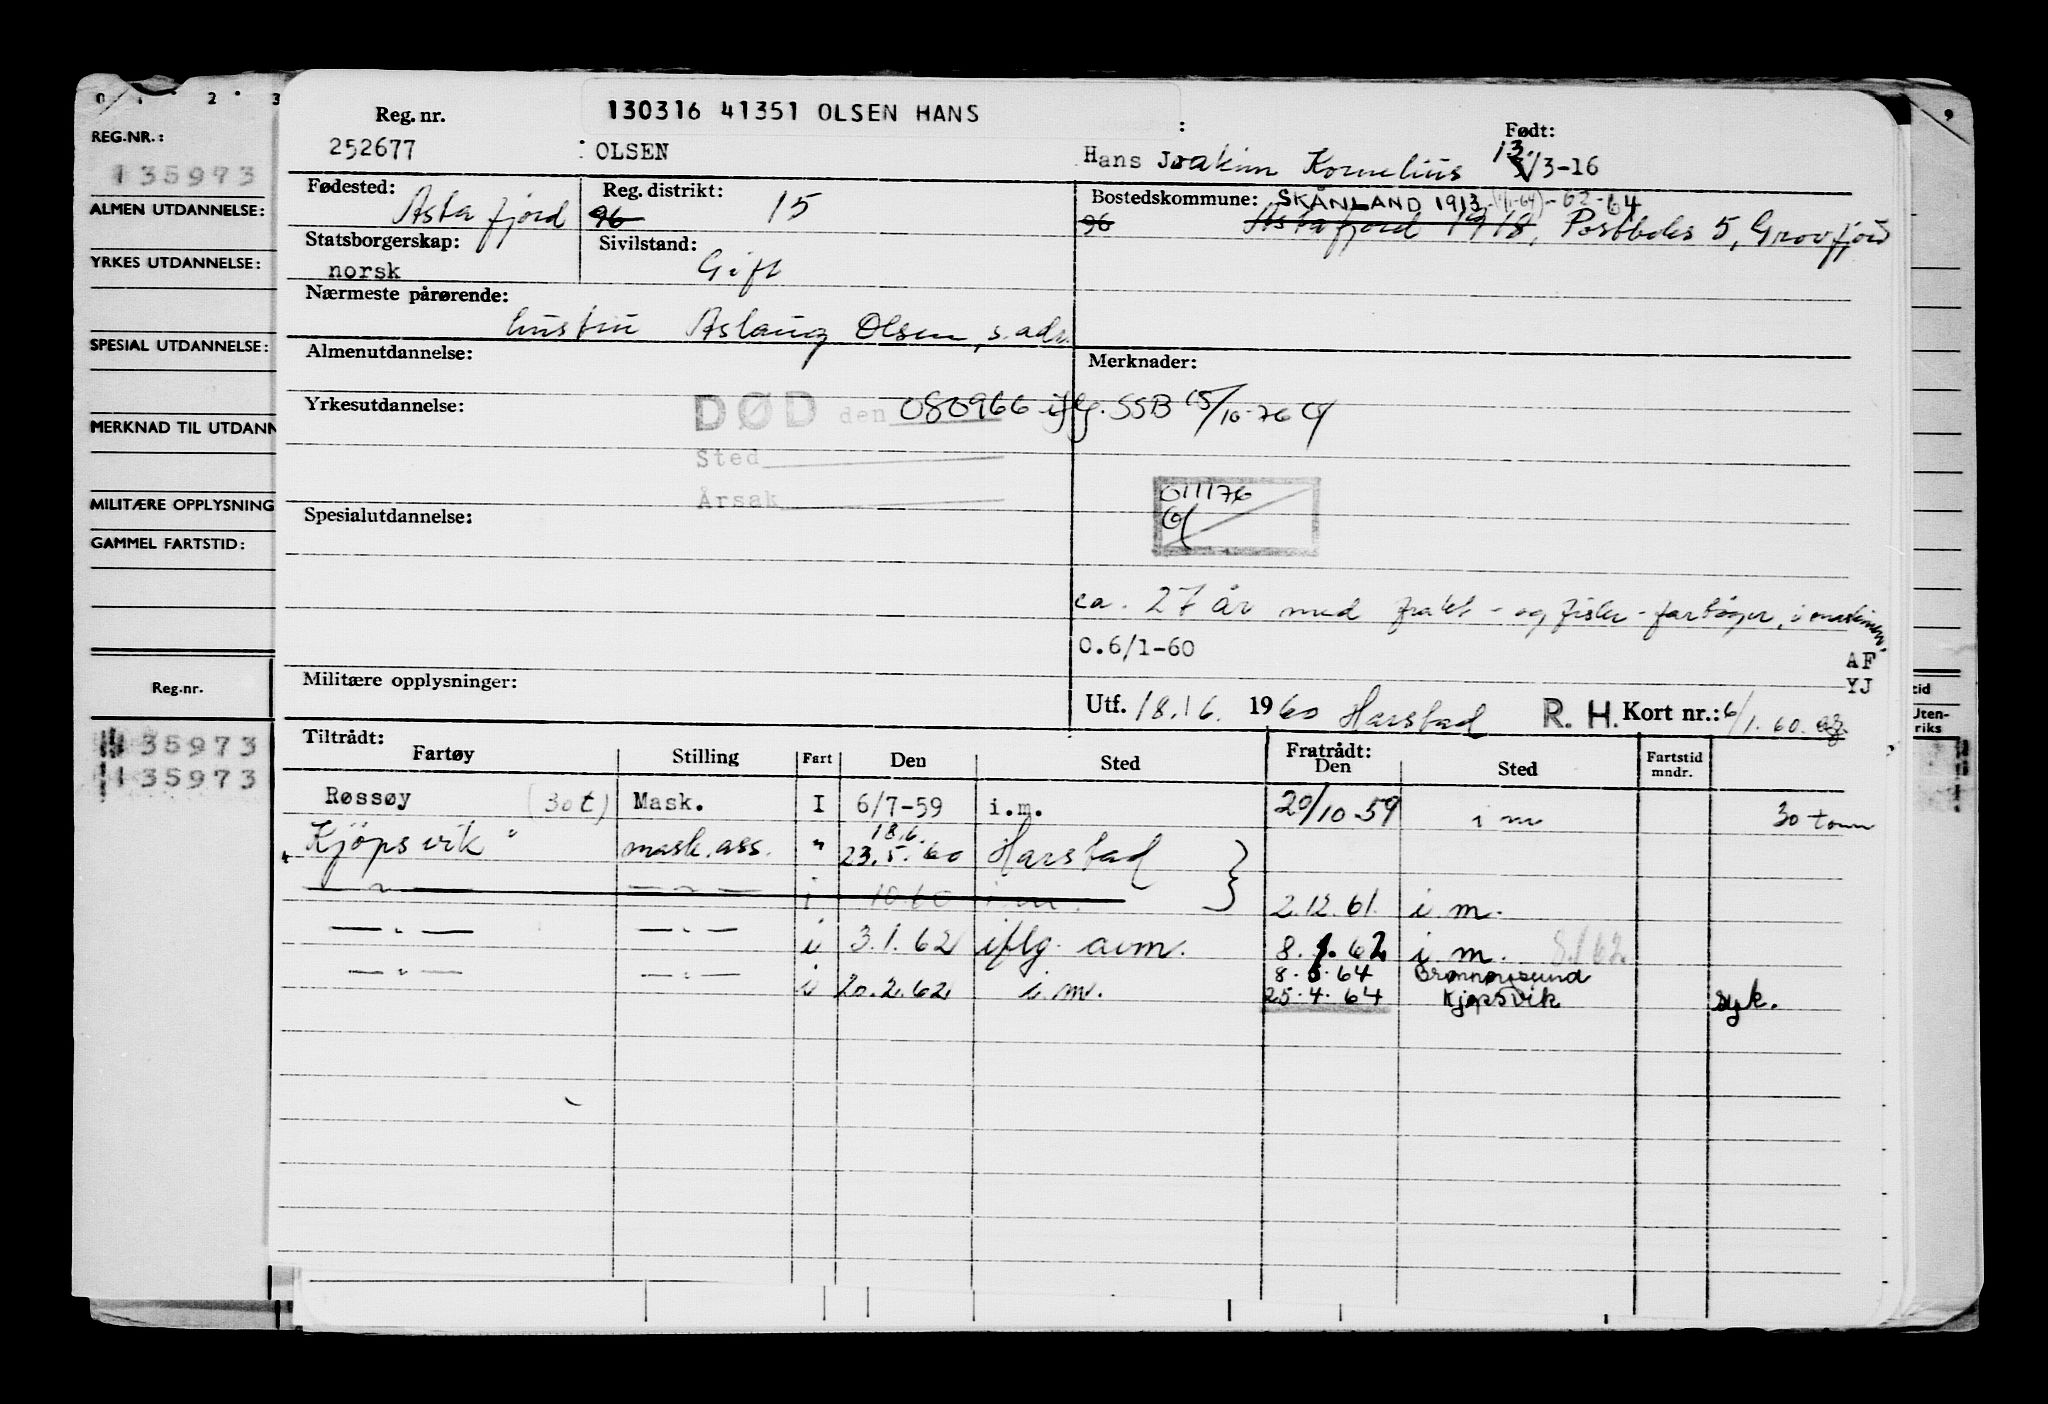 0 . 1 . 2 . 3
9
REG.NR.:
135973
ALMEN UTDANNELSE:
YRKES UTDANNELSE:
SPESIAL UTDANNELSE:
MERKNAD TIL UTDANN
MILITÆRE OPPLYSNING
GAMMEL FARTSTID:
Reg.nr.
135973
135973
Reg. nr. 130316 41351 OLSEN HANS : Født:
252677 OLSEN Hans Joakim Kornelius 13/3-16
Fødested: Astafjord Reg. distrikt: 96 15 Bostedskommune: SKÅNLAND 1913 (1/1-64) - 62-64
96 Astafjord 1918, Postboks 5, Grovfjord
Statsborgerskap: norsk Sivilstand: Gift
Nærmeste pårørende:
hustru Aslaug Olsen, s. adr.
Almenutdannelse: Merknader:
Yrkesutdannelse: DØD den 080966 iflg. SSB 15/10-76
Sted
Årsak
011176
Spesialutdannelse:
ca. 27 år med frakt- og fiske-fartøyer, i maskinen,
0.6/1-60
AF
YJ
Militære opplysninger: Utf. 18.6. 1960 Harstad R. H. Kort nr.: 6/1.60.
tid
Uten-
riks
Tiltrådt: Fratrådt:
Fartøy Stilling Fart Den Sted Den Sted Fartstid mndr.
Røssøy (30t) Mask. I 6/7-59 i.m. 20/10-59 i m 30 tonn
18.6.
"Kjöpsvik" mask.ass. " 23.5.60 Harstad }
— " — — " — i 10.60 i m. 2.12.61. i m.
— " — — " — i 3.1.62 iflg. avm. 8.1.62 i m. 8.1.62.
8.3.64 Brønnøysund
— " — — " — i 20.2.62 i.m. 25.4.64 Kjøpsvik syk.